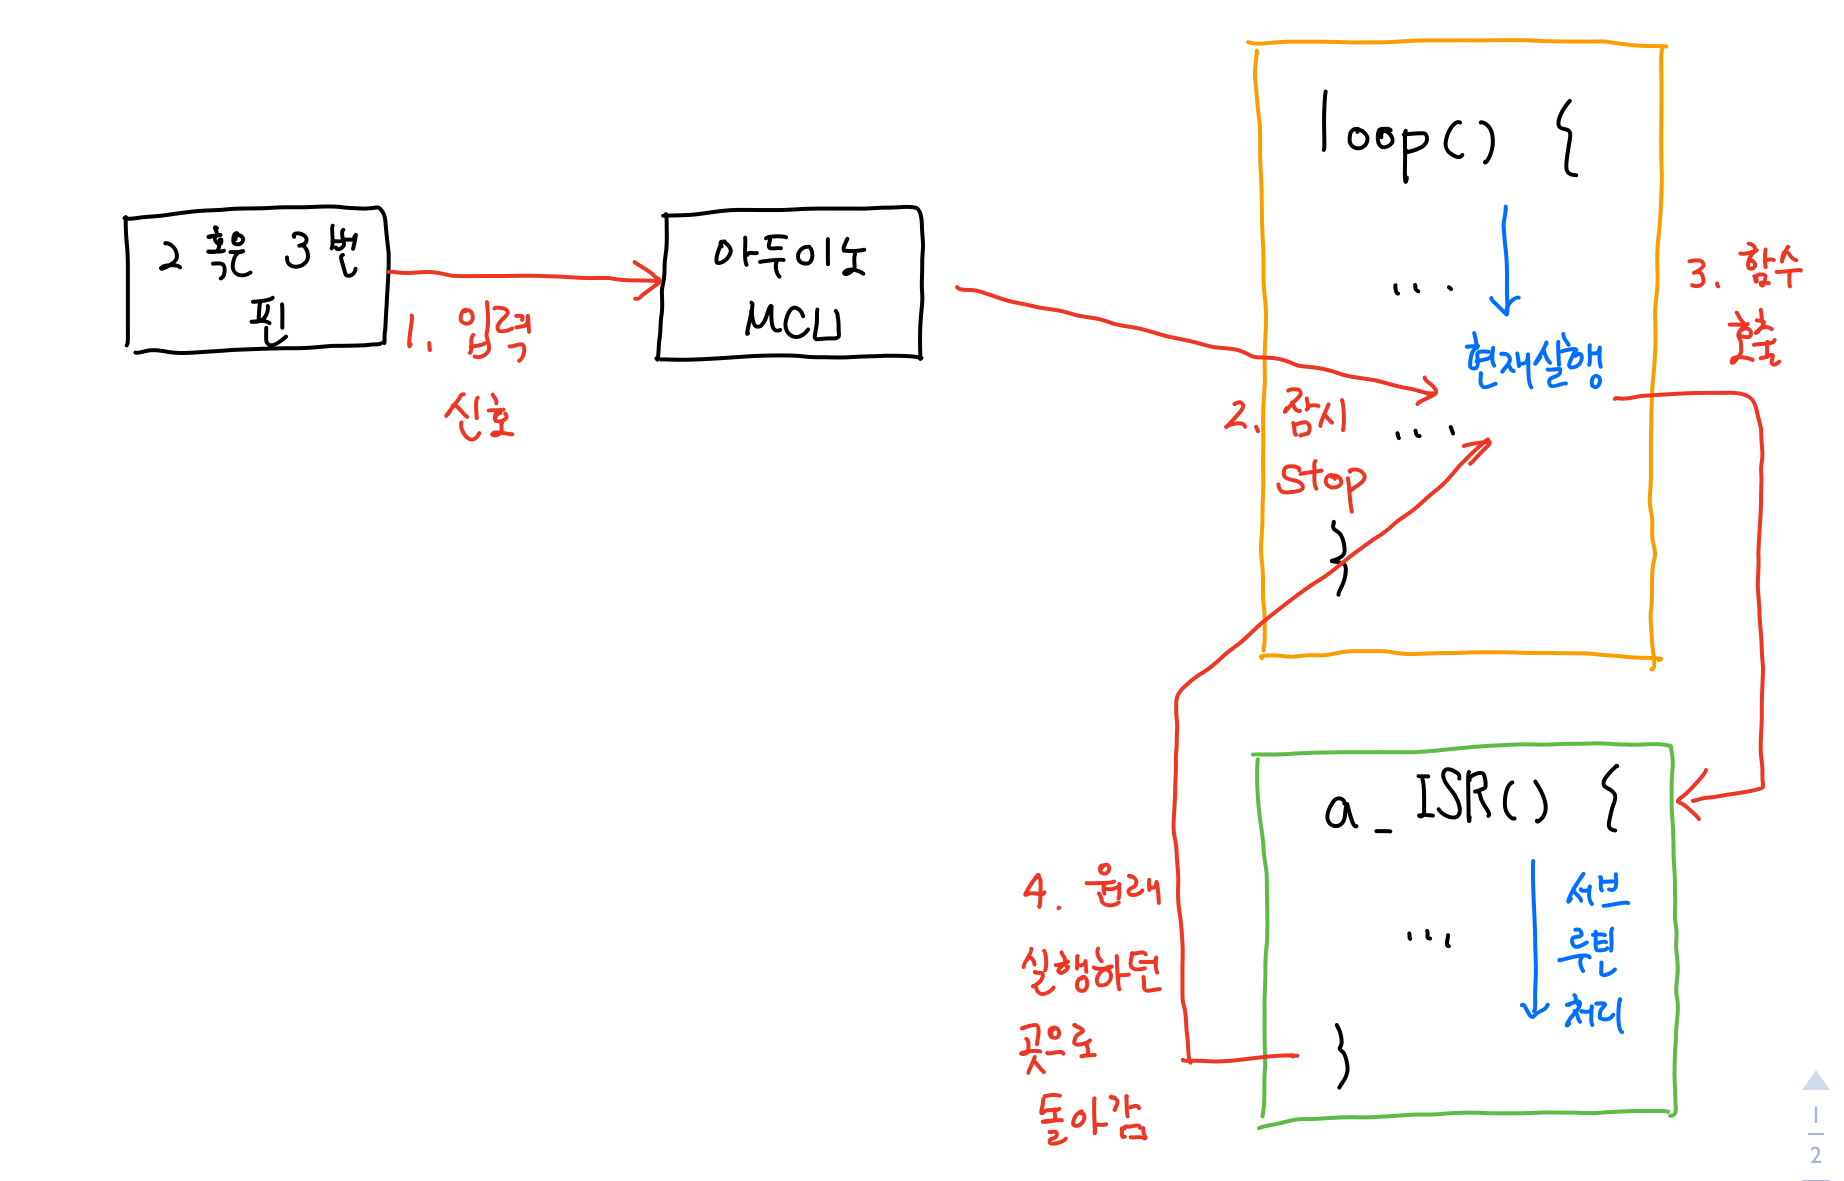 2 혹은 3 번
핀
1. 입력
신호
아두이노
MCU
loop() {
...
현재실행
2. 잠시
stop
...
}
3. 함수
호출
a_ISR() {
...
서브
루틴
처리
}
4. 원래
실행하던
곳으로
돌아감
1
2